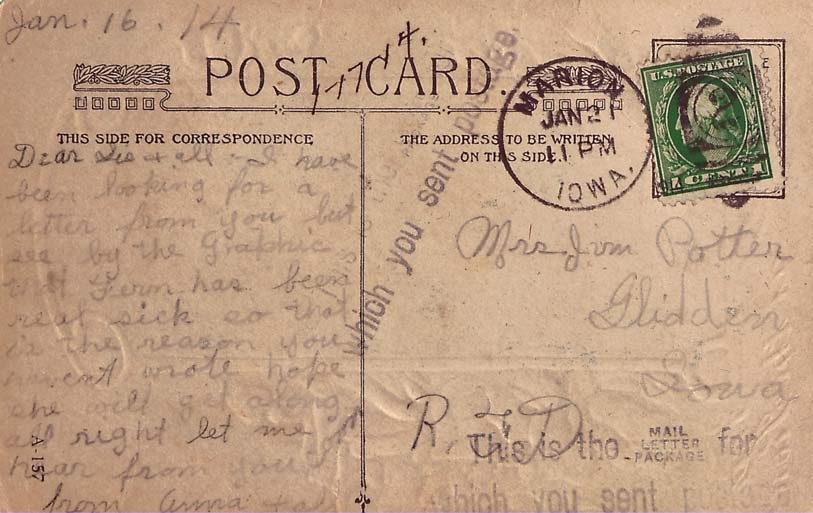 Jan. 16. 14
POST CARD.
THIS SIDE FOR CORRESPONDENCE
THE ADDRESS TO BE WRITTEN
ON THIS SIDE.
MARION
JAN 21
11 PM
IOWA.
U.S. POSTAGE
1 CENT 1
Dear Sis & all - I have
been looking for a
letter from you but
see by the Graphic
that Fern has been
real sick so that
is the reason you
haven't wrote hope
she will get along
all right let me
hear from you
from Anna & all
Mrs Jim Potter
Glidden
Iowa
R.F.D
which you sent postage.
This is the MAIL LETTER PACKAGE for
which you sent
A-157